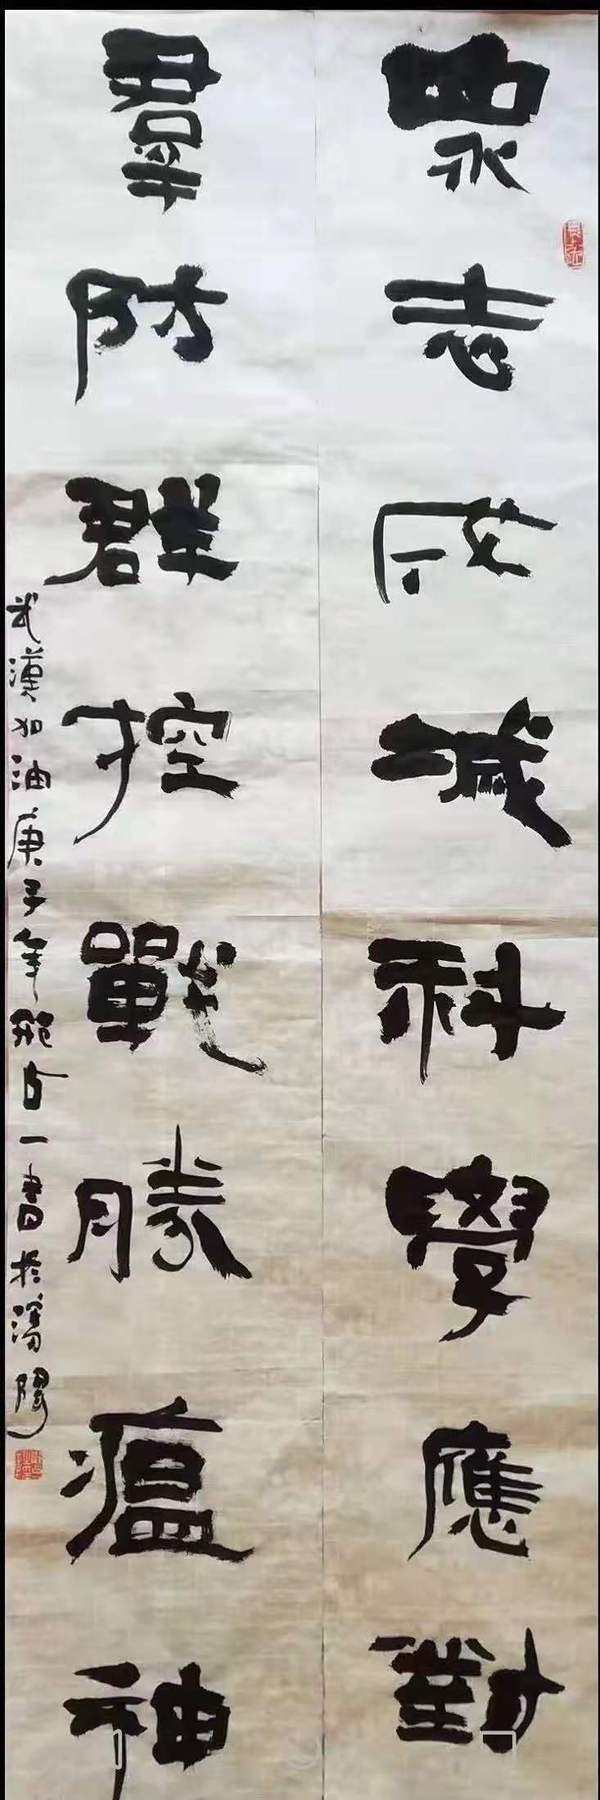 眾志成城科學應對
羣防群控戰勝瘟神
武漢加油庚子年范占一書於瀋陽